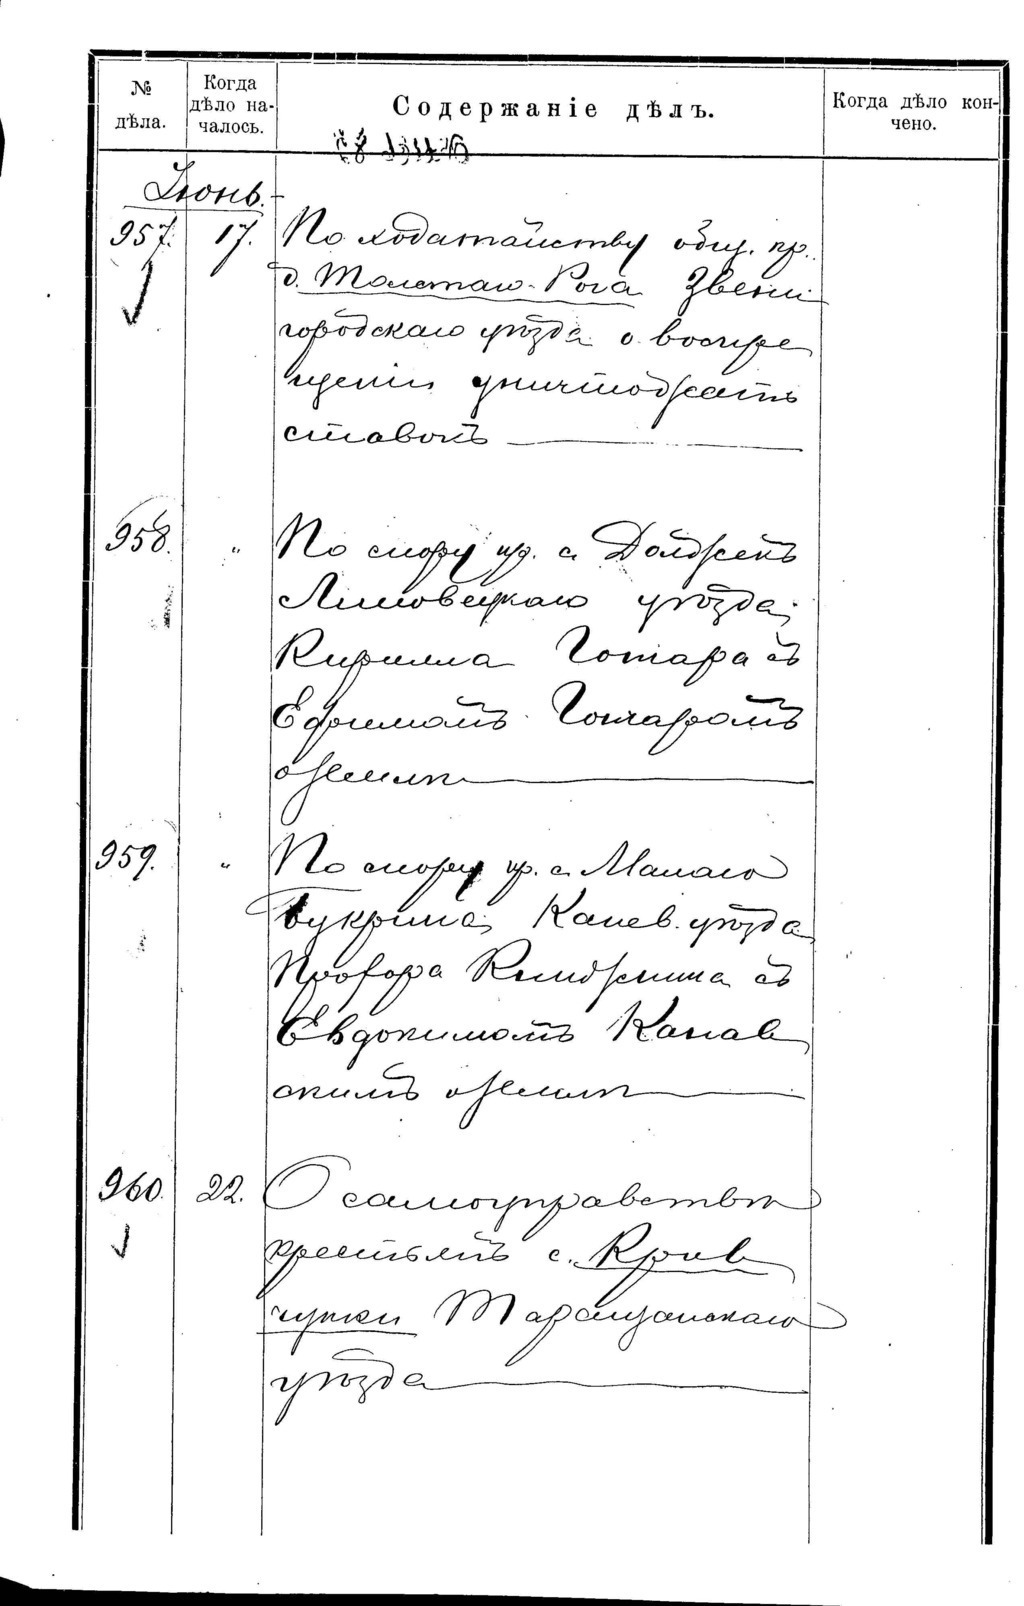 № дѣла.
Когда дѣло на-
чалось.
Содержаніе дѣлъ.
Когда дѣло кон-
чено.
Іюнь.
957. 17. По ходатайству общ. кр.
д. Толстаго-Рога Звени
городскаго уѣзда о воспре
щеніи уничтожать
ставокъ
958. " По спору кр. с. Должекъ
Липовецкаго уѣзда,
Кирилла Гончара съ
Ефимомъ Гончаромъ
о землѣ
959. " По спору кр. с. Малаго
Букрина, Канев. уѣзда
Прохора съ
Евдокимомъ Канев
скимъ о землѣ
960. 22. О самоуправствѣ
крестьянъ с. Крив
чунки Таращанскаго
уѣзда